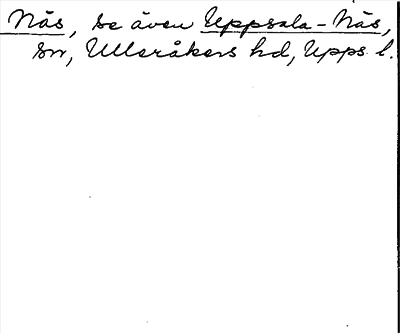 Näs, se även Uppsala-Näs,
sn, Ulleråkers hd, Upps. l.